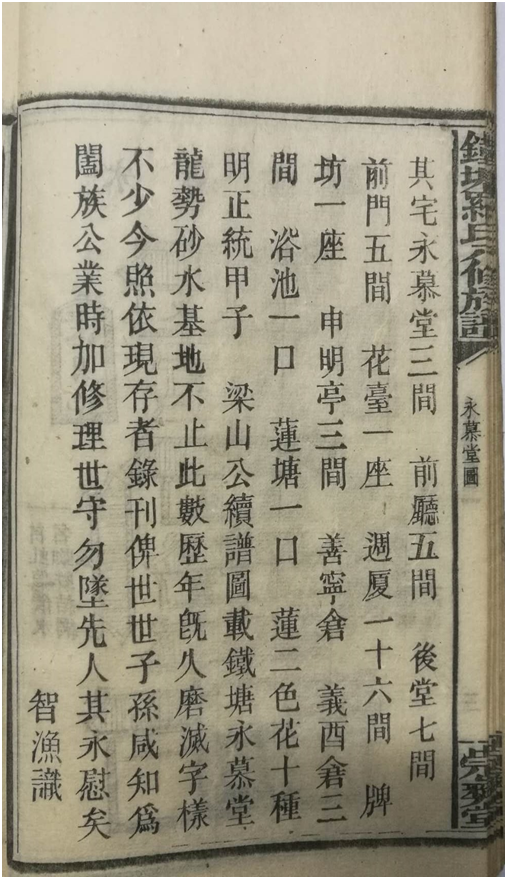 鐵塘羅氏八修族譜
永慕堂圖
其宅永慕堂三間 前廳五間 後堂七間
前門五間 花臺一座 週厦一十六間 牌
坊一座 申明亭三間 善寧倉 義酉倉三
間 浴池一口 蓮塘一口 蓮二色花十種
明正統甲子 梁山公續譜圖載鐵塘永慕堂
龍勢砂水基地不止此數歷年既久磨滅字樣
不少今照依現存者錄刊俾世世子孫咸知爲
闔族公業時加修理世守勿墜先人其永慰矣
智漁識